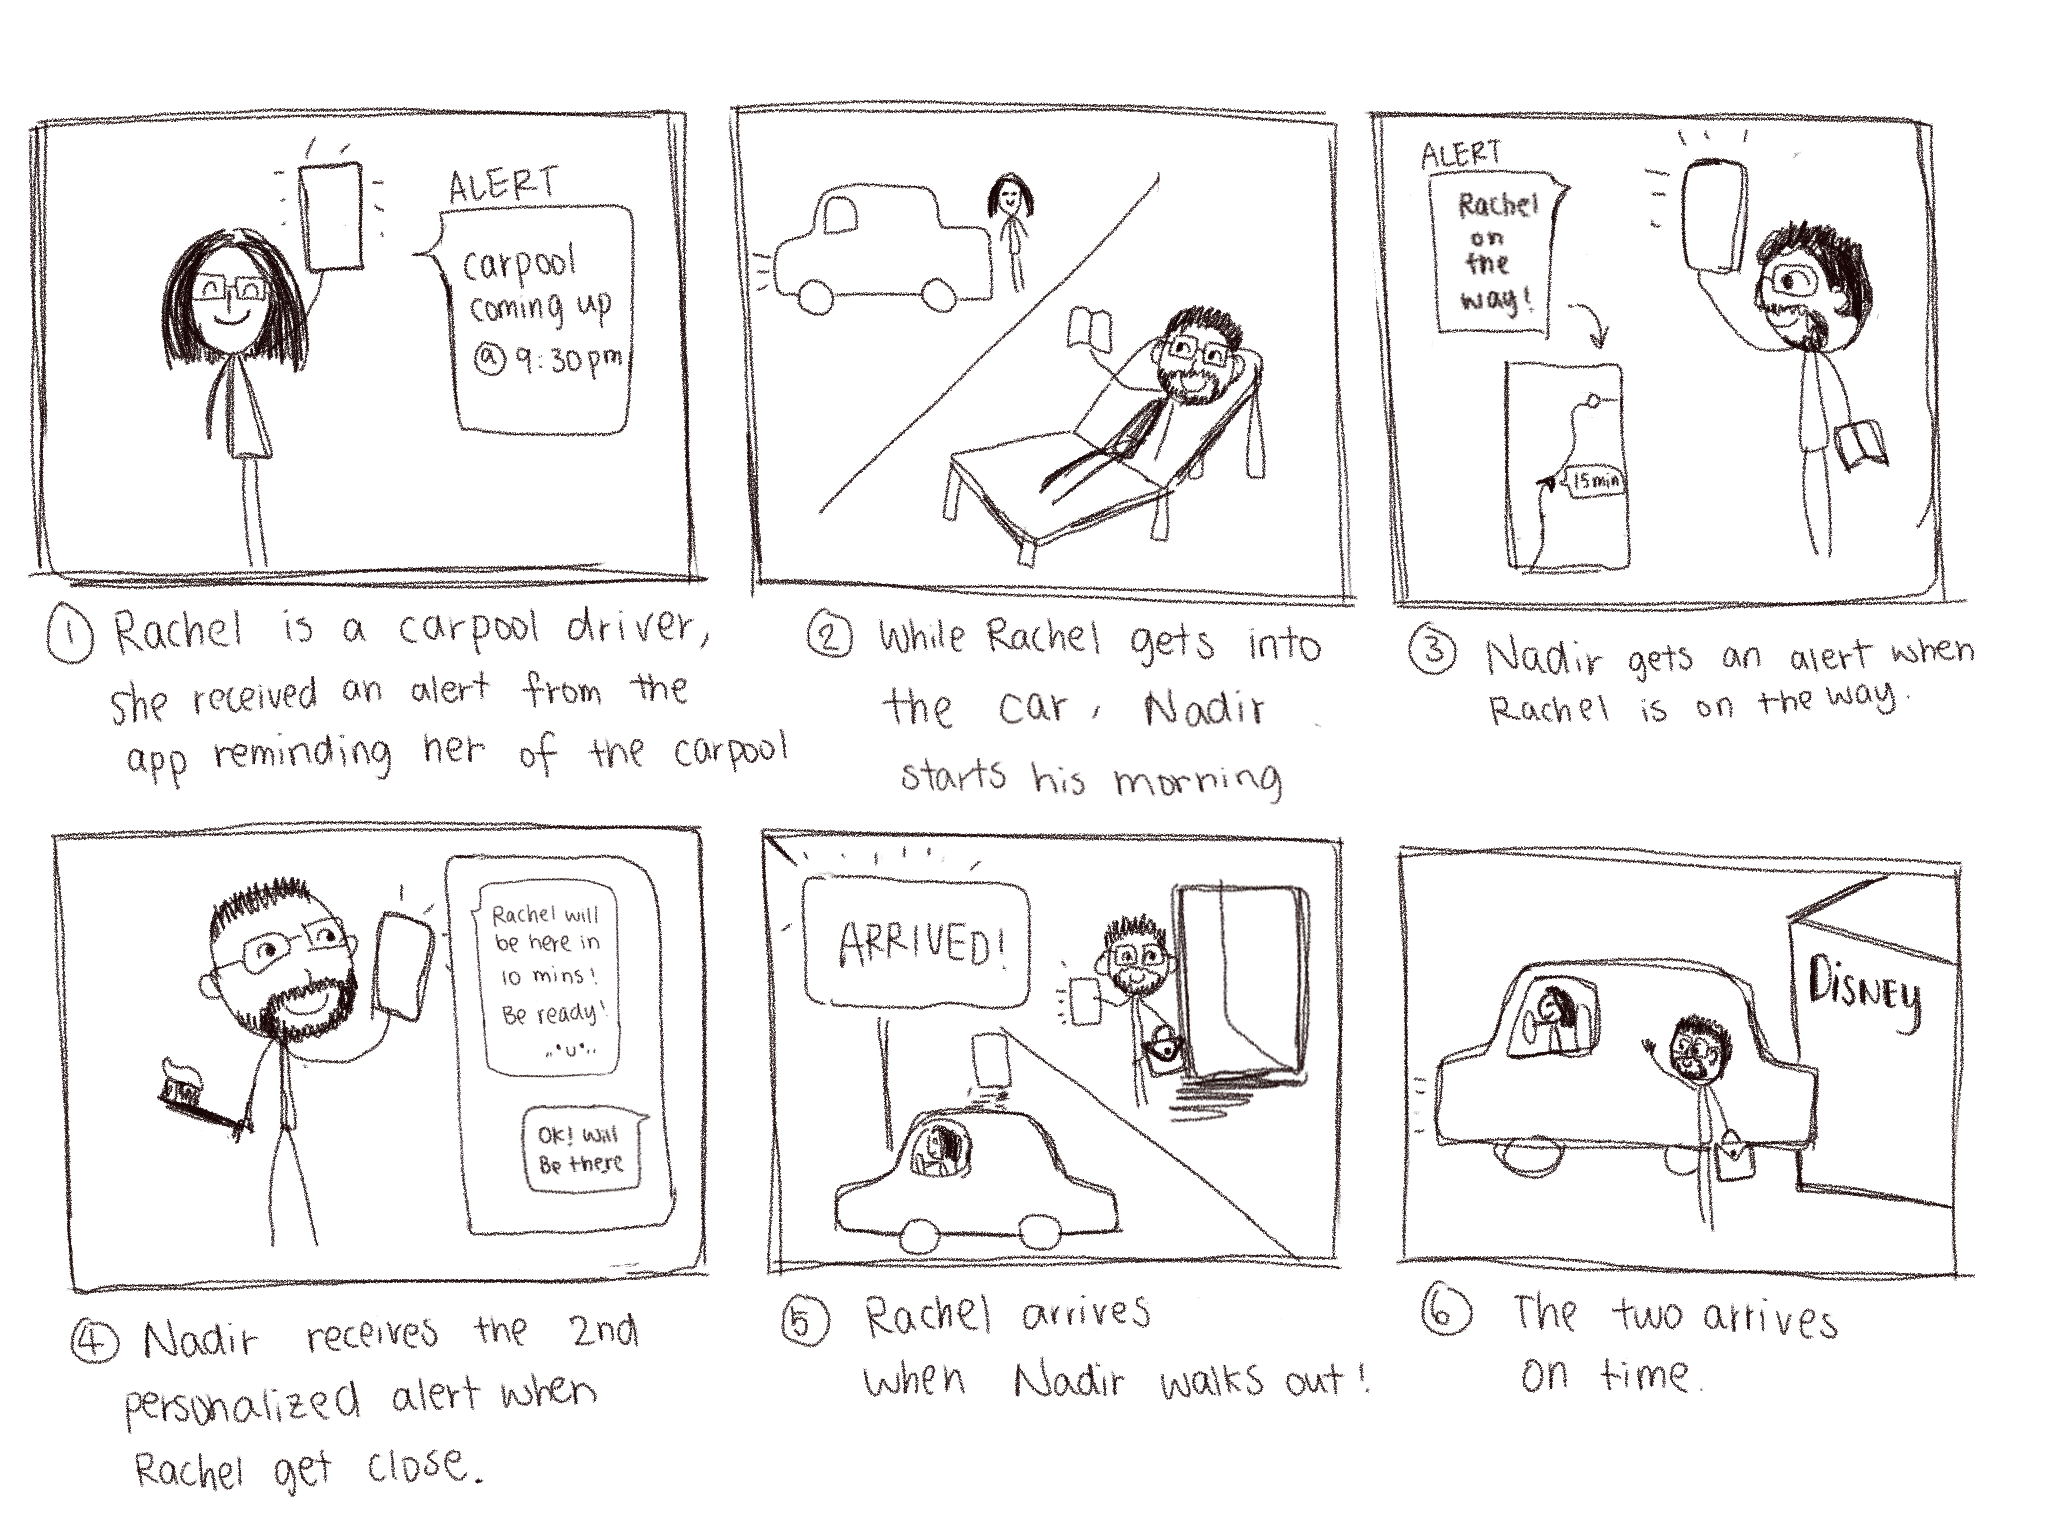 ALERT
carpool
coming up
@ 9:30pm
① Rachel is a carpool driver,
she received an alert from the
app reminding her of the carpool
② While Rachel gets into
the car, Nadir
starts his morning
ALERT
Rachel
on
the
way!
15min
③ Nadir gets an alert when
Rachel is on the way.
Rachel will
be here in
10 mins!
Be ready!
OK! Will
Be there
④ Nadir receives the 2nd
personalized alert when
Rachel get close.
ARRIVED!
⑤ Rachel arrives
when Nadir walks out!
DISNEY
⑥ The two arrives
on time.